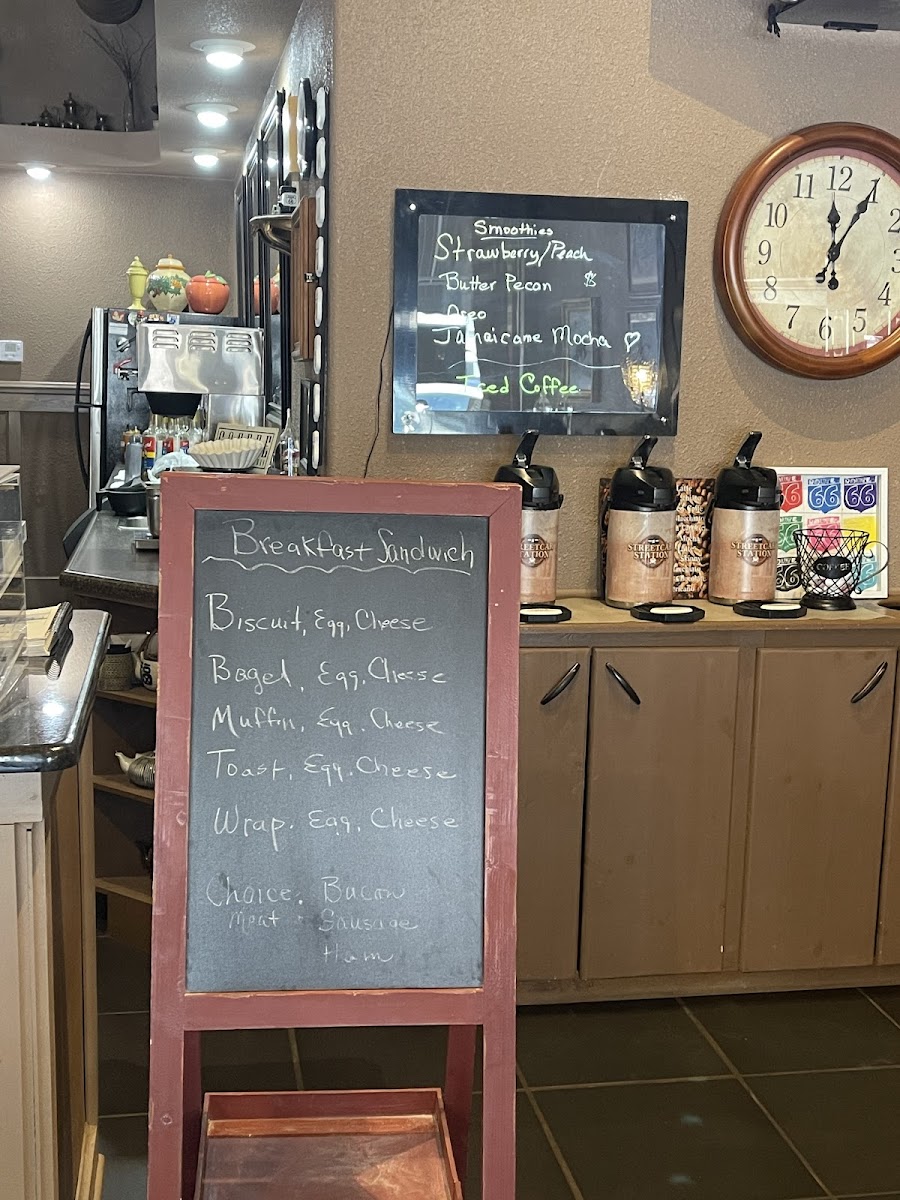 Smoothies
Strawberry/Peach
Butter Pecan $
Oreo
Jamaicane Mocha ♡
Iced Coffee
12
1
2
3
4
5
6
7
8
9
10
11
STREETCAR
STATION
STREETCAR
STATION
STREETCAR
STATION
66
66
66
66
COFFEE
Breakfast Sandwich
Biscuit, Egg, Cheese
Bagel, Egg, Cheese
Muffin, Egg, Cheese
Toast, Egg, Cheese
Wrap, Egg, Cheese
Choice, Bacon
Meat - Sausage
Ham